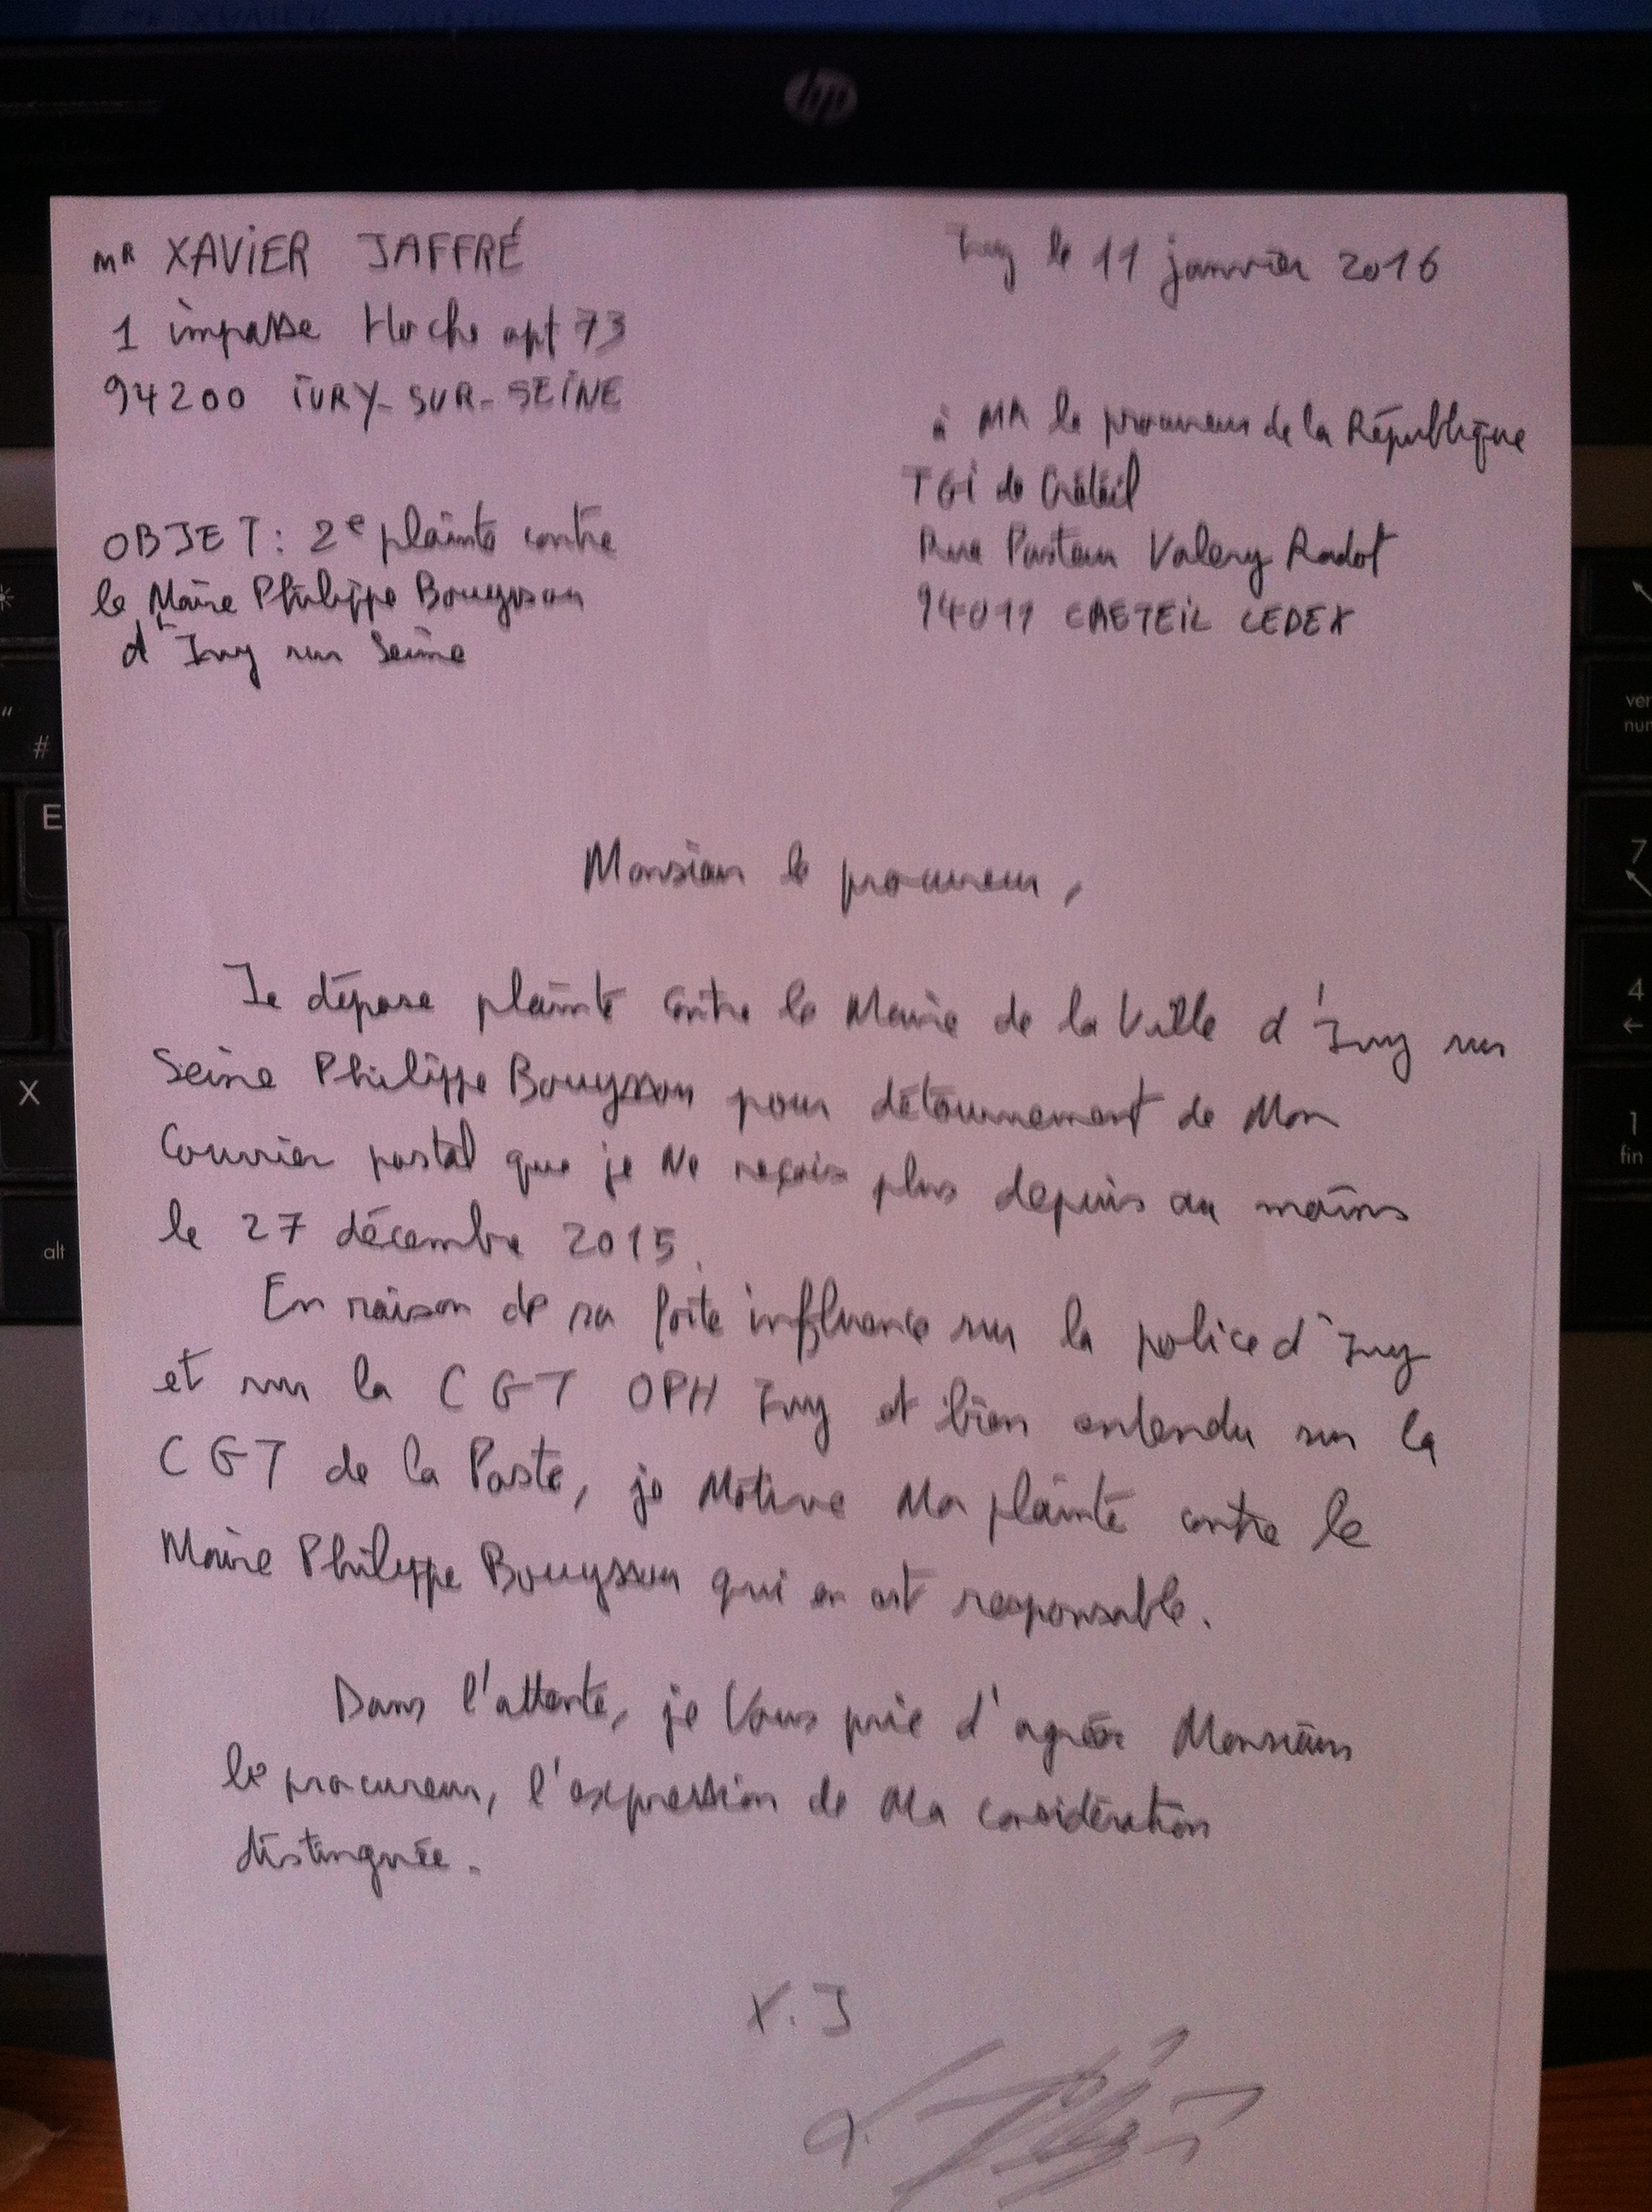 hp
Mr XAVIER JAFFRÉ
1 impasse Hoche apt 73
94200 IVRY-SUR-SEINE
Ivry le 11 janvier 2016
à MR le procureur de la République
TGI de Créteil
Rue Pasteur Valery Radot
94011 CRETEIL CEDEX
OBJET: 2e plainte contre
le Maire Philippe Bouysson
d'Ivry sur Seine
Monsieur le procureur,
Je dépose plainte contre le Maire de la Ville d'Ivry sur
Seine Philippe Bouysson pour détournement de Mon
Courrier postal que je Ne reçois plus depuis au moins
le 27 décembre 2015.
En raison de sa forte influence sur la police d'Ivry
et sur la CGT OPH Ivry et bien entendu sur la
CGT de la Poste, je Motive Ma plainte contre le
Maire Philippe Bouysson qui en est responsable.
Dans l'attente, je Vous prie d'agréer Monsieur
le procureur, l'expression de Ma considération
distinguée.
X. J
#
E
X
alt
ver
num
7
4
←
1
fin